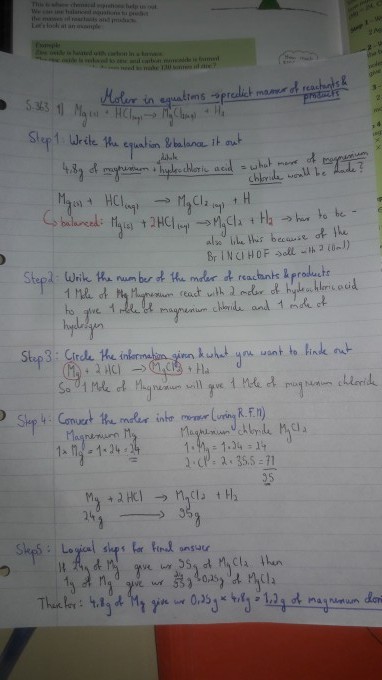 This is where chemical equations help us out.
We can use balanced equations to predict
the masses of reactants and products.
Let's look at an example:
Example
Zinc oxide is heated with carbon in a furnace
Moles in equations → predict masses of reactants &
products
S.363 1) Mg(s) + HCl(aq) → MgCl2(aq) + H2
Step 1: Write the equation & balance it out
dilute
4.8g of magnesium + hydrochloric acid = what mass of magnesium
chloride would be made?
Mg(s) + HCl(aq) → MgCl2(aq) + H
↳ balanced: Mg(s) + 2HCl(aq) → MgCl2 + H2 → has to be -
also like this because of the
Br I N Cl H O F → all with 2 (
Step 2: Write the number of the moles of reactants & products
1 Mole of Mg Magnesium react with 2 moles of hydrochloric acid
to give 1 mole of magnesium chloride and 1 mole of
hydrogen
Step 3: Circle the information given & what you want to finde out
Mg + 2 HCl → MgCl2 + H2
So 1 Mole of Magnesium will give 1 Mole of magnesium chloride
Step 4: Convert the moles into masses (using R.F.M)
Magnesium Mg Magnesium chloride MgCl2
1 × Mg = 1 × 24 = 24 1 × Mg = 1 × 24 = 24
2 × Cl = 2 × 35.5 = 71
95
Mg + 2 HCl → MgCl2 + H2
24g → 95g
Step 5: Logical steps for final answer
If 24g of Mg give us 95g of MgCl2 then
1g of Mg give us 0,25g of MgCl2
Therefor: 4.8g of Mg give us 0,25g × 4,8g = 1,2g of magnesium